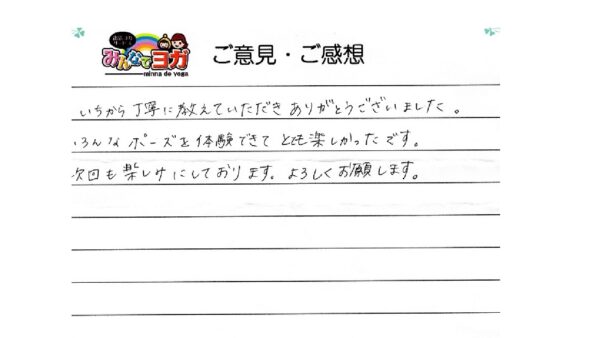 みんなでヨガ
minna de yoga
ご意見・ご感想
いちから丁寧に教えていただきありがとうございました。
いろんなポーズを体験できてとても楽しかったです。
次回も楽しみにしております。よろしくお願します。